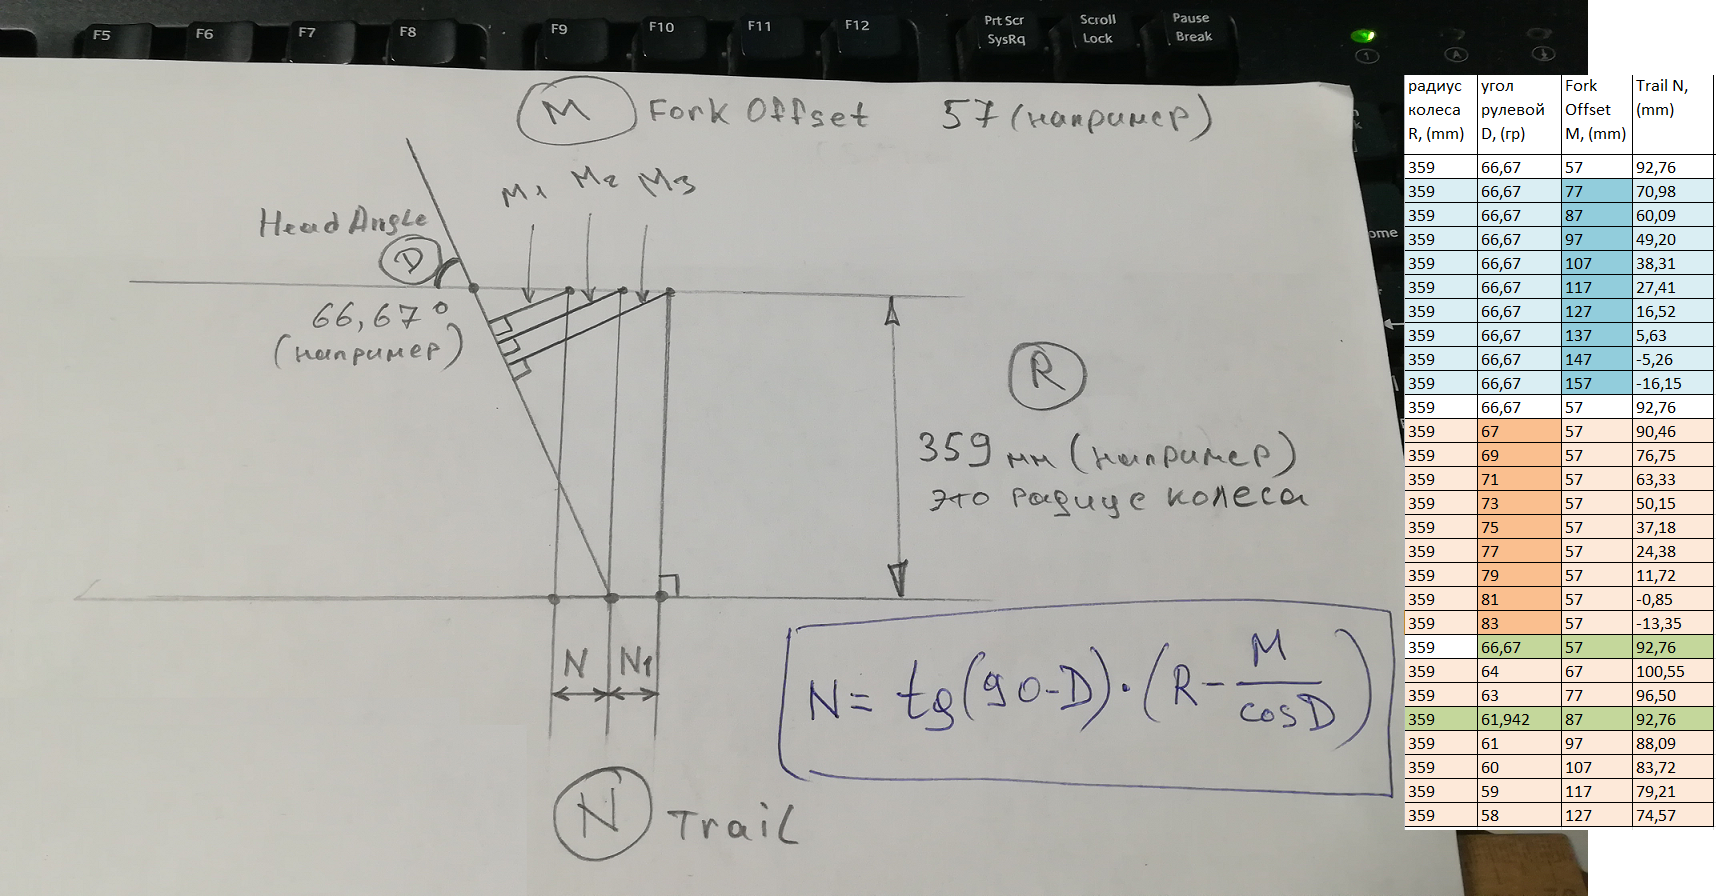 F5 F6 F7 F8 F9 F10 F11 F12
Prt Scr
SysRq
Scroll
Lock
Pause
Break
1 A
ome
M Fork Offset 57 (например)
M1 M2 M3
Head Angle
D
66,67°
(например)
R
359 мм (например)
это радиус колеса
N N1
N = tg(90-D)·(R- M/cosD)
N Trail
радиус колеса R, (mm) угол рулевой D, (гр) Fork Offset M, (mm) Trail N, (mm)
359 66,67 57 92,76
359 66,67 77 70,98
359 66,67 87 60,09
359 66,67 97 49,20
359 66,67 107 38,31
359 66,67 117 27,41
359 66,67 127 16,52
359 66,67 137 5,63
359 66,67 147 -5,26
359 66,67 157 -16,15
359 66,67 57 92,76
359 67 57 90,46
359 69 57 76,75
359 71 57 63,33
359 73 57 50,15
359 75 57 37,18
359 77 57 24,38
359 79 57 11,72
359 81 57 -0,85
359 83 57 -13,35
359 66,67 57 92,76
359 64 67 100,55
359 63 77 96,50
359 61,942 87 92,76
359 61 97 88,09
359 60 107 83,72
359 59 117 79,21
359 58 127 74,57